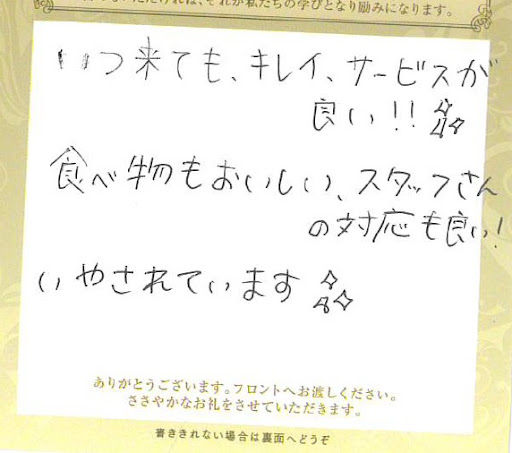 いただければ、それが私たちの学びとなり励みになります。
いつ来ても、キレイ、サービスが
良い!!
食べ物もおいしい、スタッフさん
の対応も良い!
いやされています
ありがとうございます。フロントへお渡しください。
ささやかなお礼をさせていただきます。
書ききれない場合は裏面へどうぞ